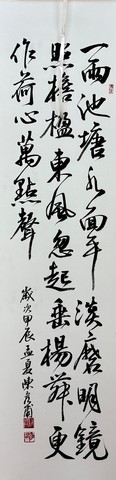 一雨池塘水面平淡磨明鏡
照檐楹東風忽起垂楊舞更
作荷心萬點聲
歲次甲辰孟夏陳